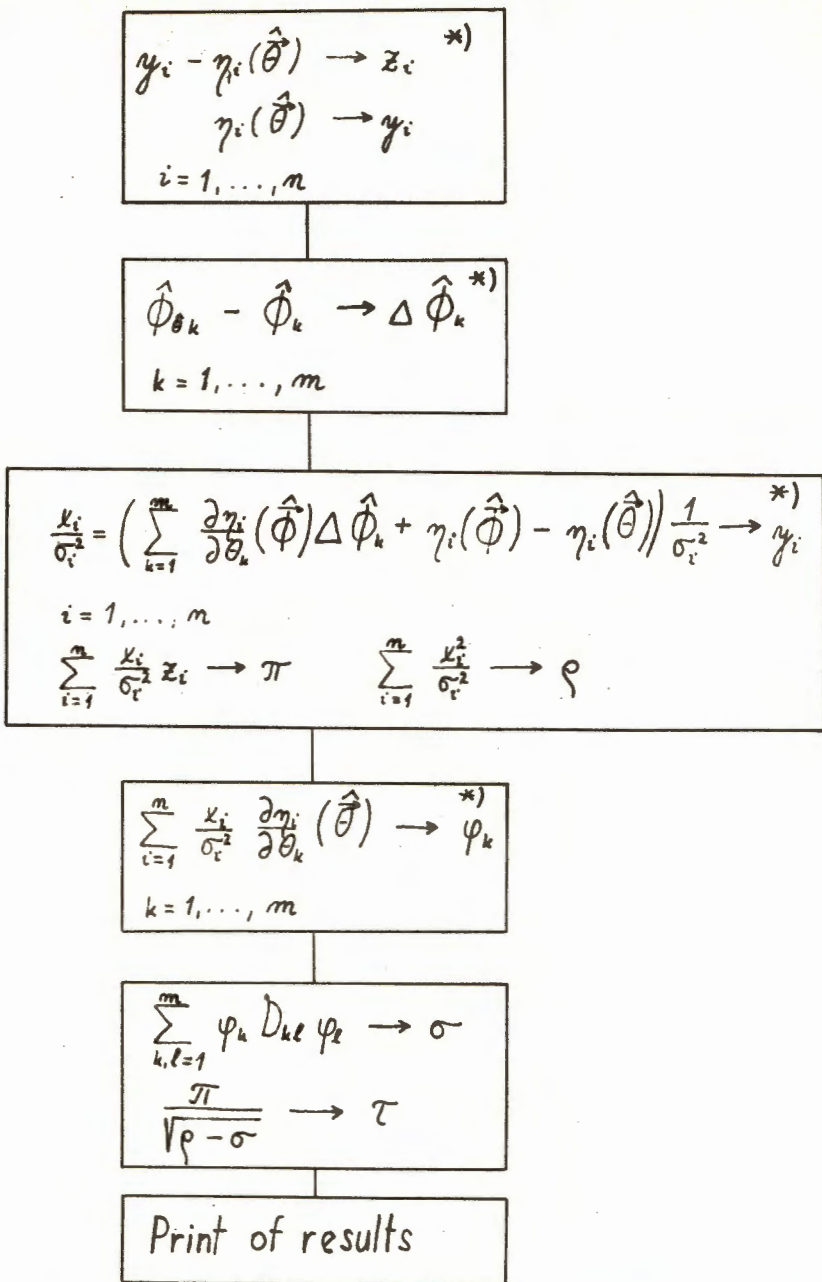 y_i − η_i(θ̂⃗) → z_i *)
η_i(θ̂⃗) → y_i
i = 1, . . . , n
ϕ̂_θ̂k − ϕ̂_k → Δ ϕ̂_k *)
k = 1, . . . , m
x_i/σ_i² = ( ∑_{k=1}^{m} ∂η_i/∂θ_k (ϕ̂⃗) Δ ϕ̂_k + η_i(ϕ̂⃗) − η_i(θ̂⃗) ) 1/σ_i² → y_i *)
i = 1, . . . , n
∑_{i=1}^{n} x_i/σ_i² z_i → π ∑_{i=1}^{n} x_i²/σ_i² → ρ
∑_{i=1}^{n} x_i/σ_i² ∂η_i/∂θ_k (θ̂⃗) → φ_k *)
k = 1, . . . , m
∑_{k,l=1}^{m} φ_k D_kl φ_l → σ
π/√(ρ − σ) → τ
Print of results